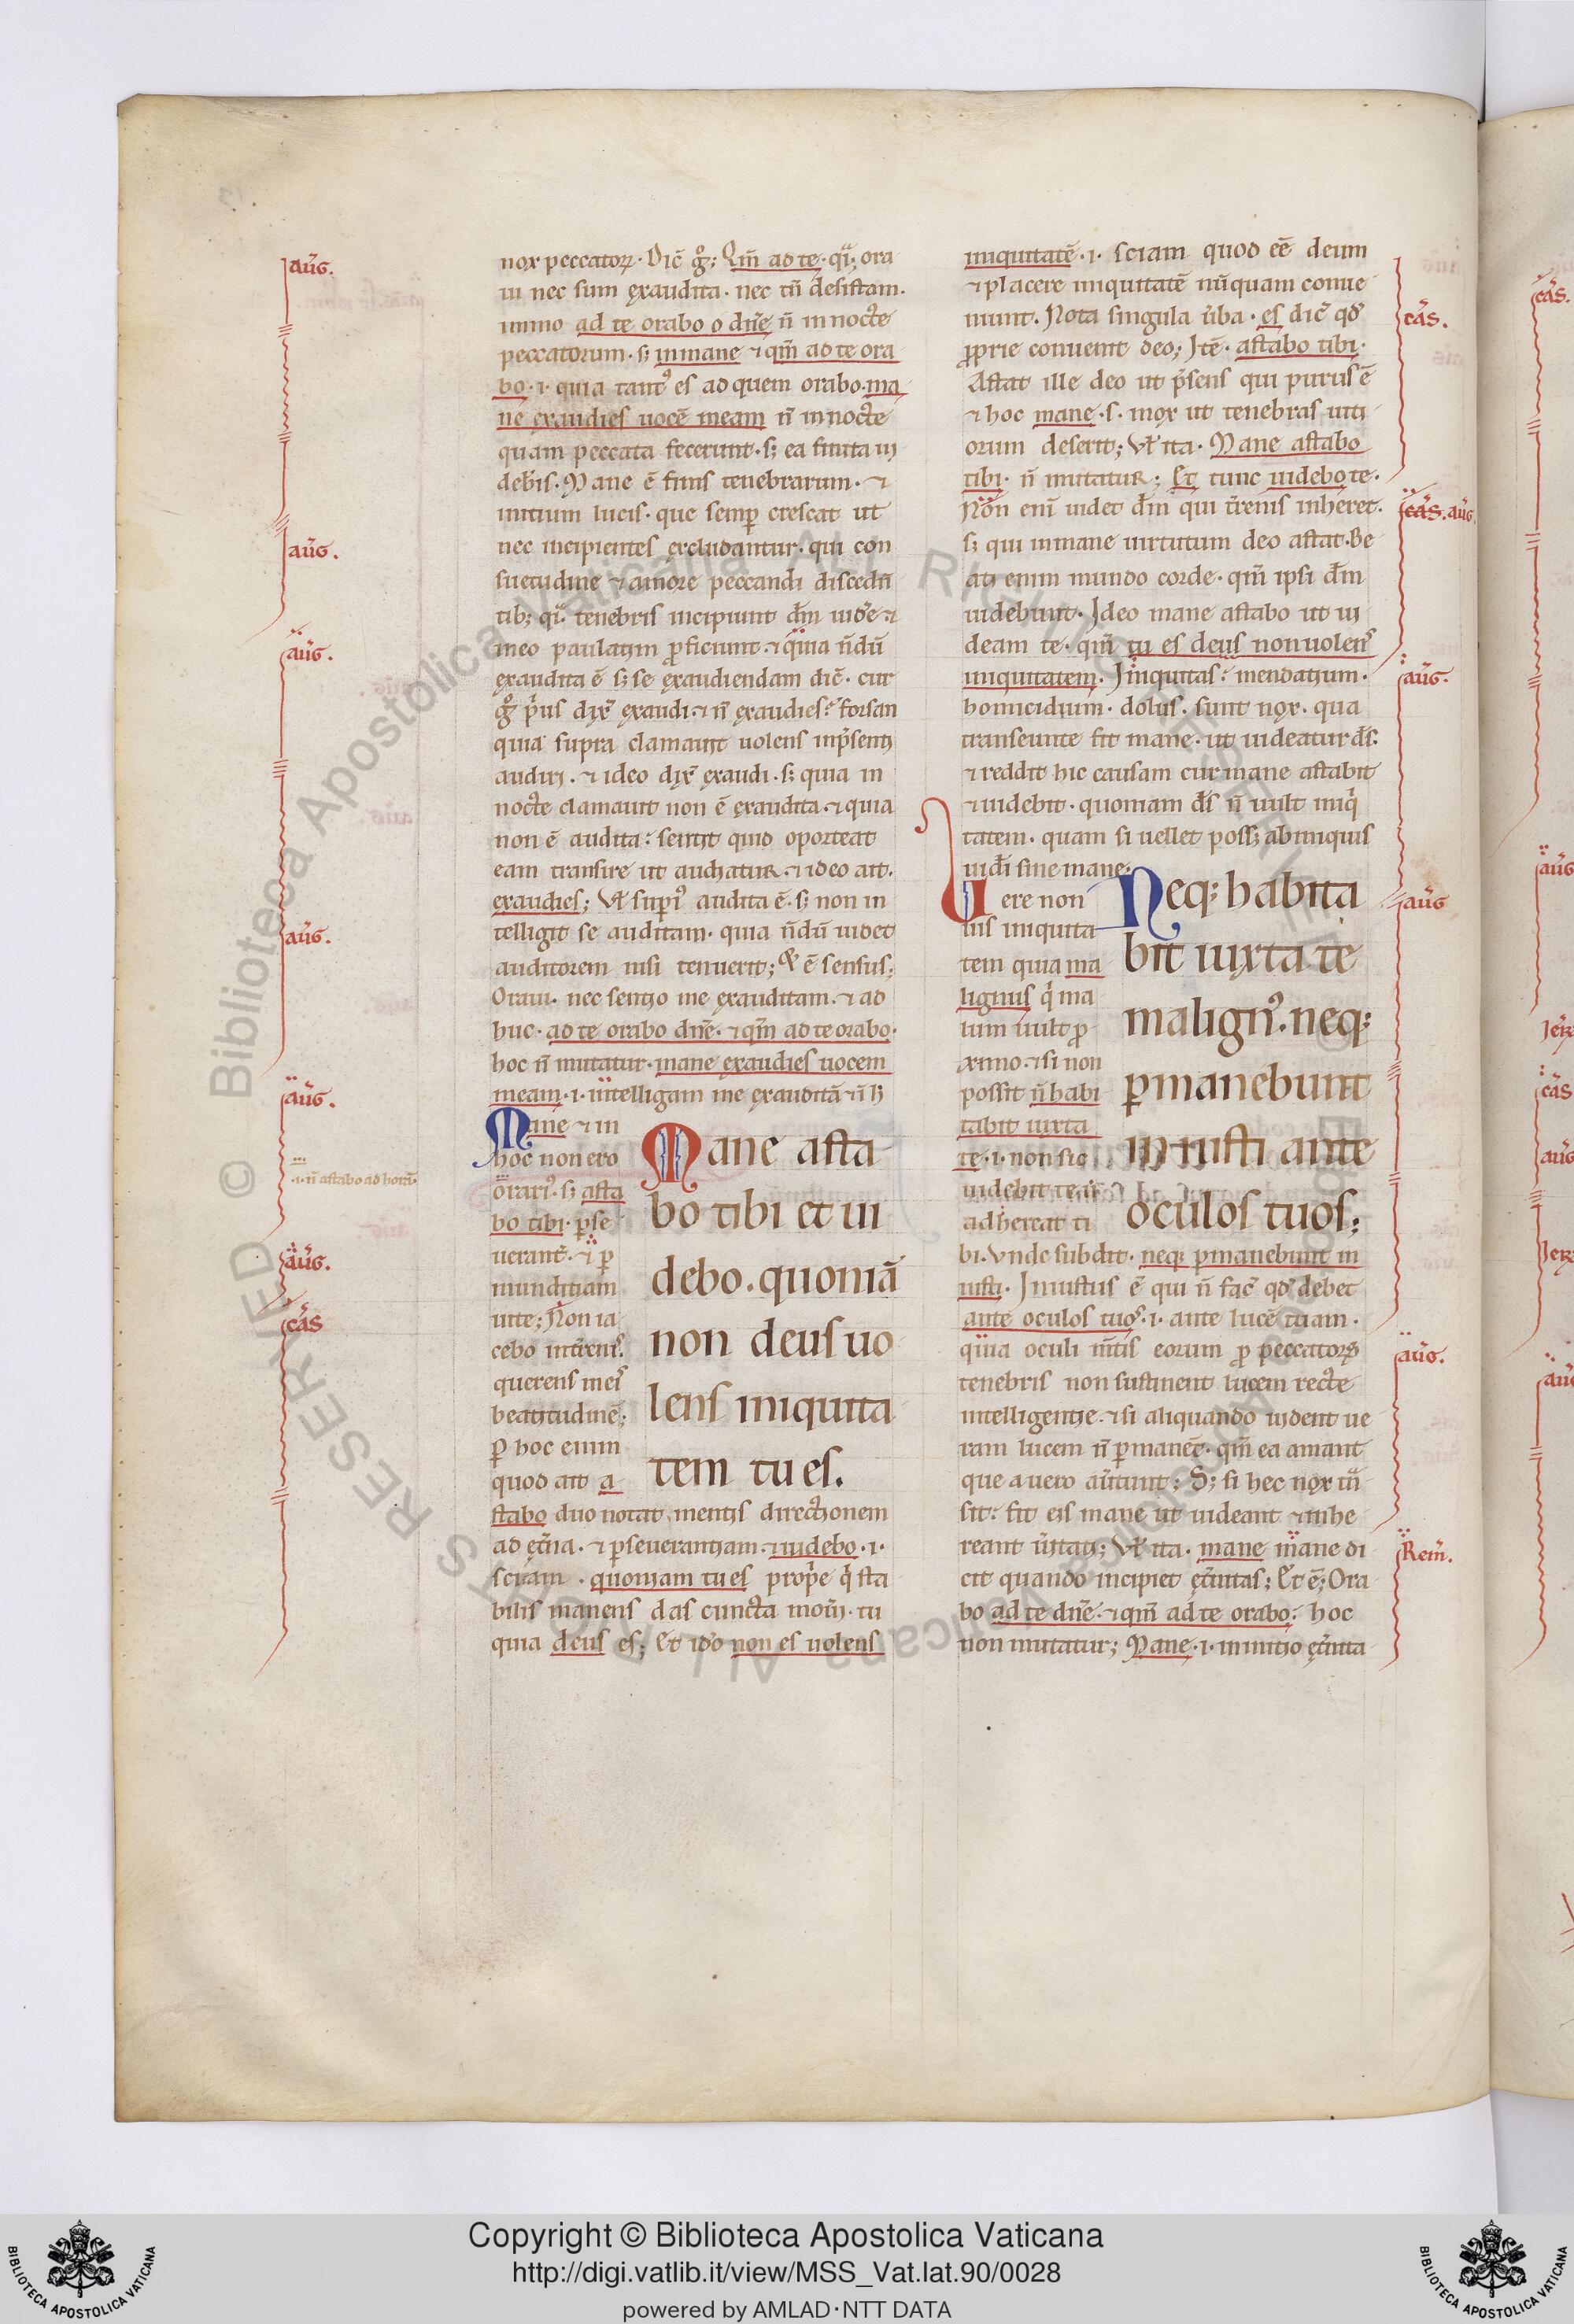 nox peccatoꝝ. Dic̄ gͦ; Qm̄ ad te. qͣ; ora
ui nec sum ęxaudita. nec tn̄ desistam.
immo ad te orabo o dn̄e n̄ in nocte
peccatorum. s; in mane ⁊ qm̄ ad te ora
bo .i. quia tantꝰ es ad quem orabo. ma
ne ęxaudies uocē meam n̄ in nocte
quam peccata fecerunt. s; ea finita ui
deb̄is. Mane ē finis tenebrarum. ⁊
initium lucis. que semꝑ crescat ut
nec incipientes ęxcludantur. qui con
suetudine ⁊ amore peccandi discedū
tib; qͣ tenebris incipiunt dm̄ uidēe ⁊
in eo paulatim ꝓficiunt. ⁊ quia n̄dū
ęxaudita ē s; se ęxaudiendam dic̄. cur
gͦ pͥus dix̄ ęxaudi. ⁊ n̄ ęxaudies? forsan
quia supra clamauit uolens in p̄senti
audiri. ⁊ ideo dix̄ ęxaudi. s; quia in
nocte clamauit non ē ęxaudita. ⁊ quia
non ē audita: sentit quid oporteat
eam transire ut audiatur. ⁊ ideo ait.
ęxaudies; Vł supͥ audita ē. s; non in
telligit se auditam. quia n̄dū uidet
auditorem nisi tenuerit; ē sensus;
Oraui. nec sentio me ęxauditam. ⁊ ad
huc. ad te orabo dn̄e. ⁊ qm̄ ad te orabo.
hoc n̄ mutatur. mane ęxaudies uocem
meam .i. intelligam me ęxauditā
Mane ⁊ in
hoc non ero
orarͥ. s; asta
bo tibi. ꝑse
uerant̄. ⁊ ꝑ
munditiam
uite; Non ia
cebo in tr̄enis.
querens meͥ
beatitudinē;
ꝑ hoc enim
quod ait a
stabo duo notat mentis directionem
ad ęt̄na. ⁊ ꝑseuerantiam. ⁊ uidebo .i.
sciam. quoniam tu es prop̄e qͥ sta
bilis manens das cuncta mou̅i. tu
quia deus es; Et iđo non es uolens
Mane asta
bo tibi et ui
debo. quoniā
non deus uo
lens iniquita
tem tu es.
iniquitatē .i. sciam quod eē deum
⁊ placere iniquitatē nūquam conue
niunt. Nota singula ūba. es dic̄ qđ
ꝓprie conuenit deo; Itē. astabo tibi.
Astat ille deo ut p̄sens qui purus ē
⁊ hoc mane .s. mox ut tenebras uiti
orum deserit; Vł ita. Mane astabo
tibi. n̄ mutatur; Et tunc uidebo te.
Non enī uidet dm̄ qui tr̄enis inheret.
s; qui in mane uirtutum deo astat. Be
ati enim mundo corde. qm̄ ipsi dm̄
uidebunt. Ideo mane astabo ut ui
deam te. qm̄ tu es deus non uolens
iniquitatem. Iniquitas: mendatium.
homicidium. dolus. sunt nox. qua
transeunte fit mane. ut uideatur ds̄.
⁊ reddit hic causam cur mane astabit
⁊ uidebit. quoniam ds̄ n̄ uult iniqͥ
tatem. quam si uellet poss; ab iniquis
uidēi sine mane.
Uere non
uis iniquita
tem quia ma
lignus qͥ ma
lum uult ꝓ
ximo. ⁊ si non
possit n̄ habi
tabit iuxta
te .i. non sic
uidebit te
adhereat ti
bi. Vnde subdit. neq; ꝑmanebunt in
iusti. Iniustus ē qui n̄ fac̄ qđ debet
ante oculos tuoꝰ .i. ante lucē tuam.
quia oculi m̄tis eorum ꝓ peccatorꝫ
tenebris non sustinent lucem recte
intelligentie. ⁊ si aliquando uident ue
ram lucem n̄ ꝑmanēt. qm̄ ea amant
que a uero aūtunt; S; si hec nox tn̄
sit: fit eis mane ut uideant ⁊ inhe
reant ūitati; Vł ita. mane mane di
cit quando incipiet ęt̄nitas; Et ē; Ora
bo ad te dn̄e. ⁊ qm̄ ad te orabo: hoc
non mutatur; Mane .i. in initio ęt̄nita
Neq; habita
bit iuxta te
malignꝰ. neq;
ꝑmanebunt
iniusti ante
oculos tuos;
aūg.
aūg.
aūg.
aūg.
aūg.
.i. n̄ astabo ad horā.
aūg.
cās
cās.
cās. aūg.
aūg.
aūg
aūg.
Rem̄.
cās.
aūg
Ier
cās
aūg
Ier
aūg
© Biblioteca Apostolica Vaticana ALL RIGHTS RESERVED
© Biblioteca Apostolica Vaticana ALL RIGHTS RESERVED
Copyright © Biblioteca Apostolica Vaticana
http://digi.vatlib.it/view/MSS_Vat.lat.90/0028
powered by AMLAD·NTT DATA
BIBLIOTECA APOSTOLICA VATICANA
BIBLIOTECA APOSTOLICA VATICANA